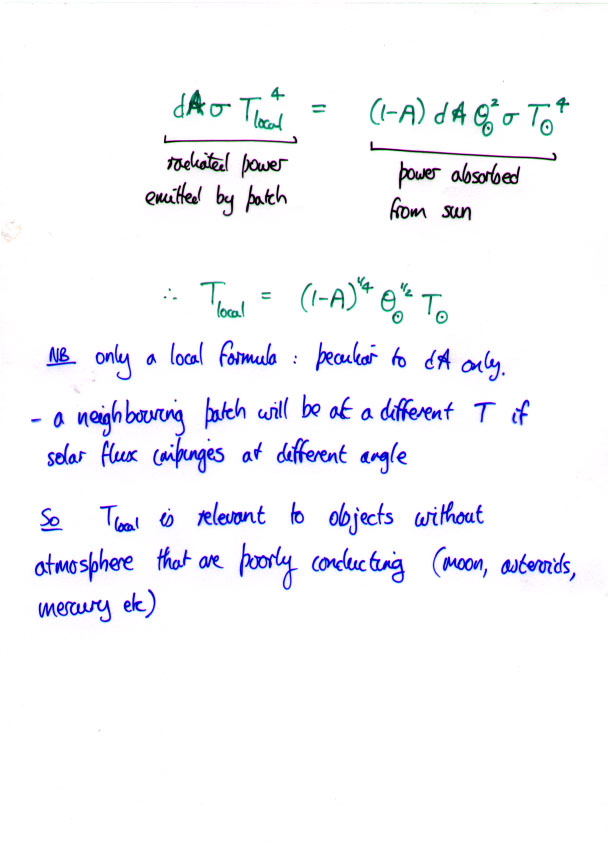 dA σ T_local^4 = (1-A) dA θ_⊙^2 σ T_⊙^4
radiated power
emitted by patch
power absorbed
from sun
∴ T_local = (1-A)^1/4 θ_⊙^1/2 T_⊙
NB only a local formula : peculiar to dA only.
- a neighbouring patch will be at a different T if
solar flux impinges at different angle
So T_local is relevant to objects without
atmosphere that are poorly conducting (moon, asteroids,
mercury etc)